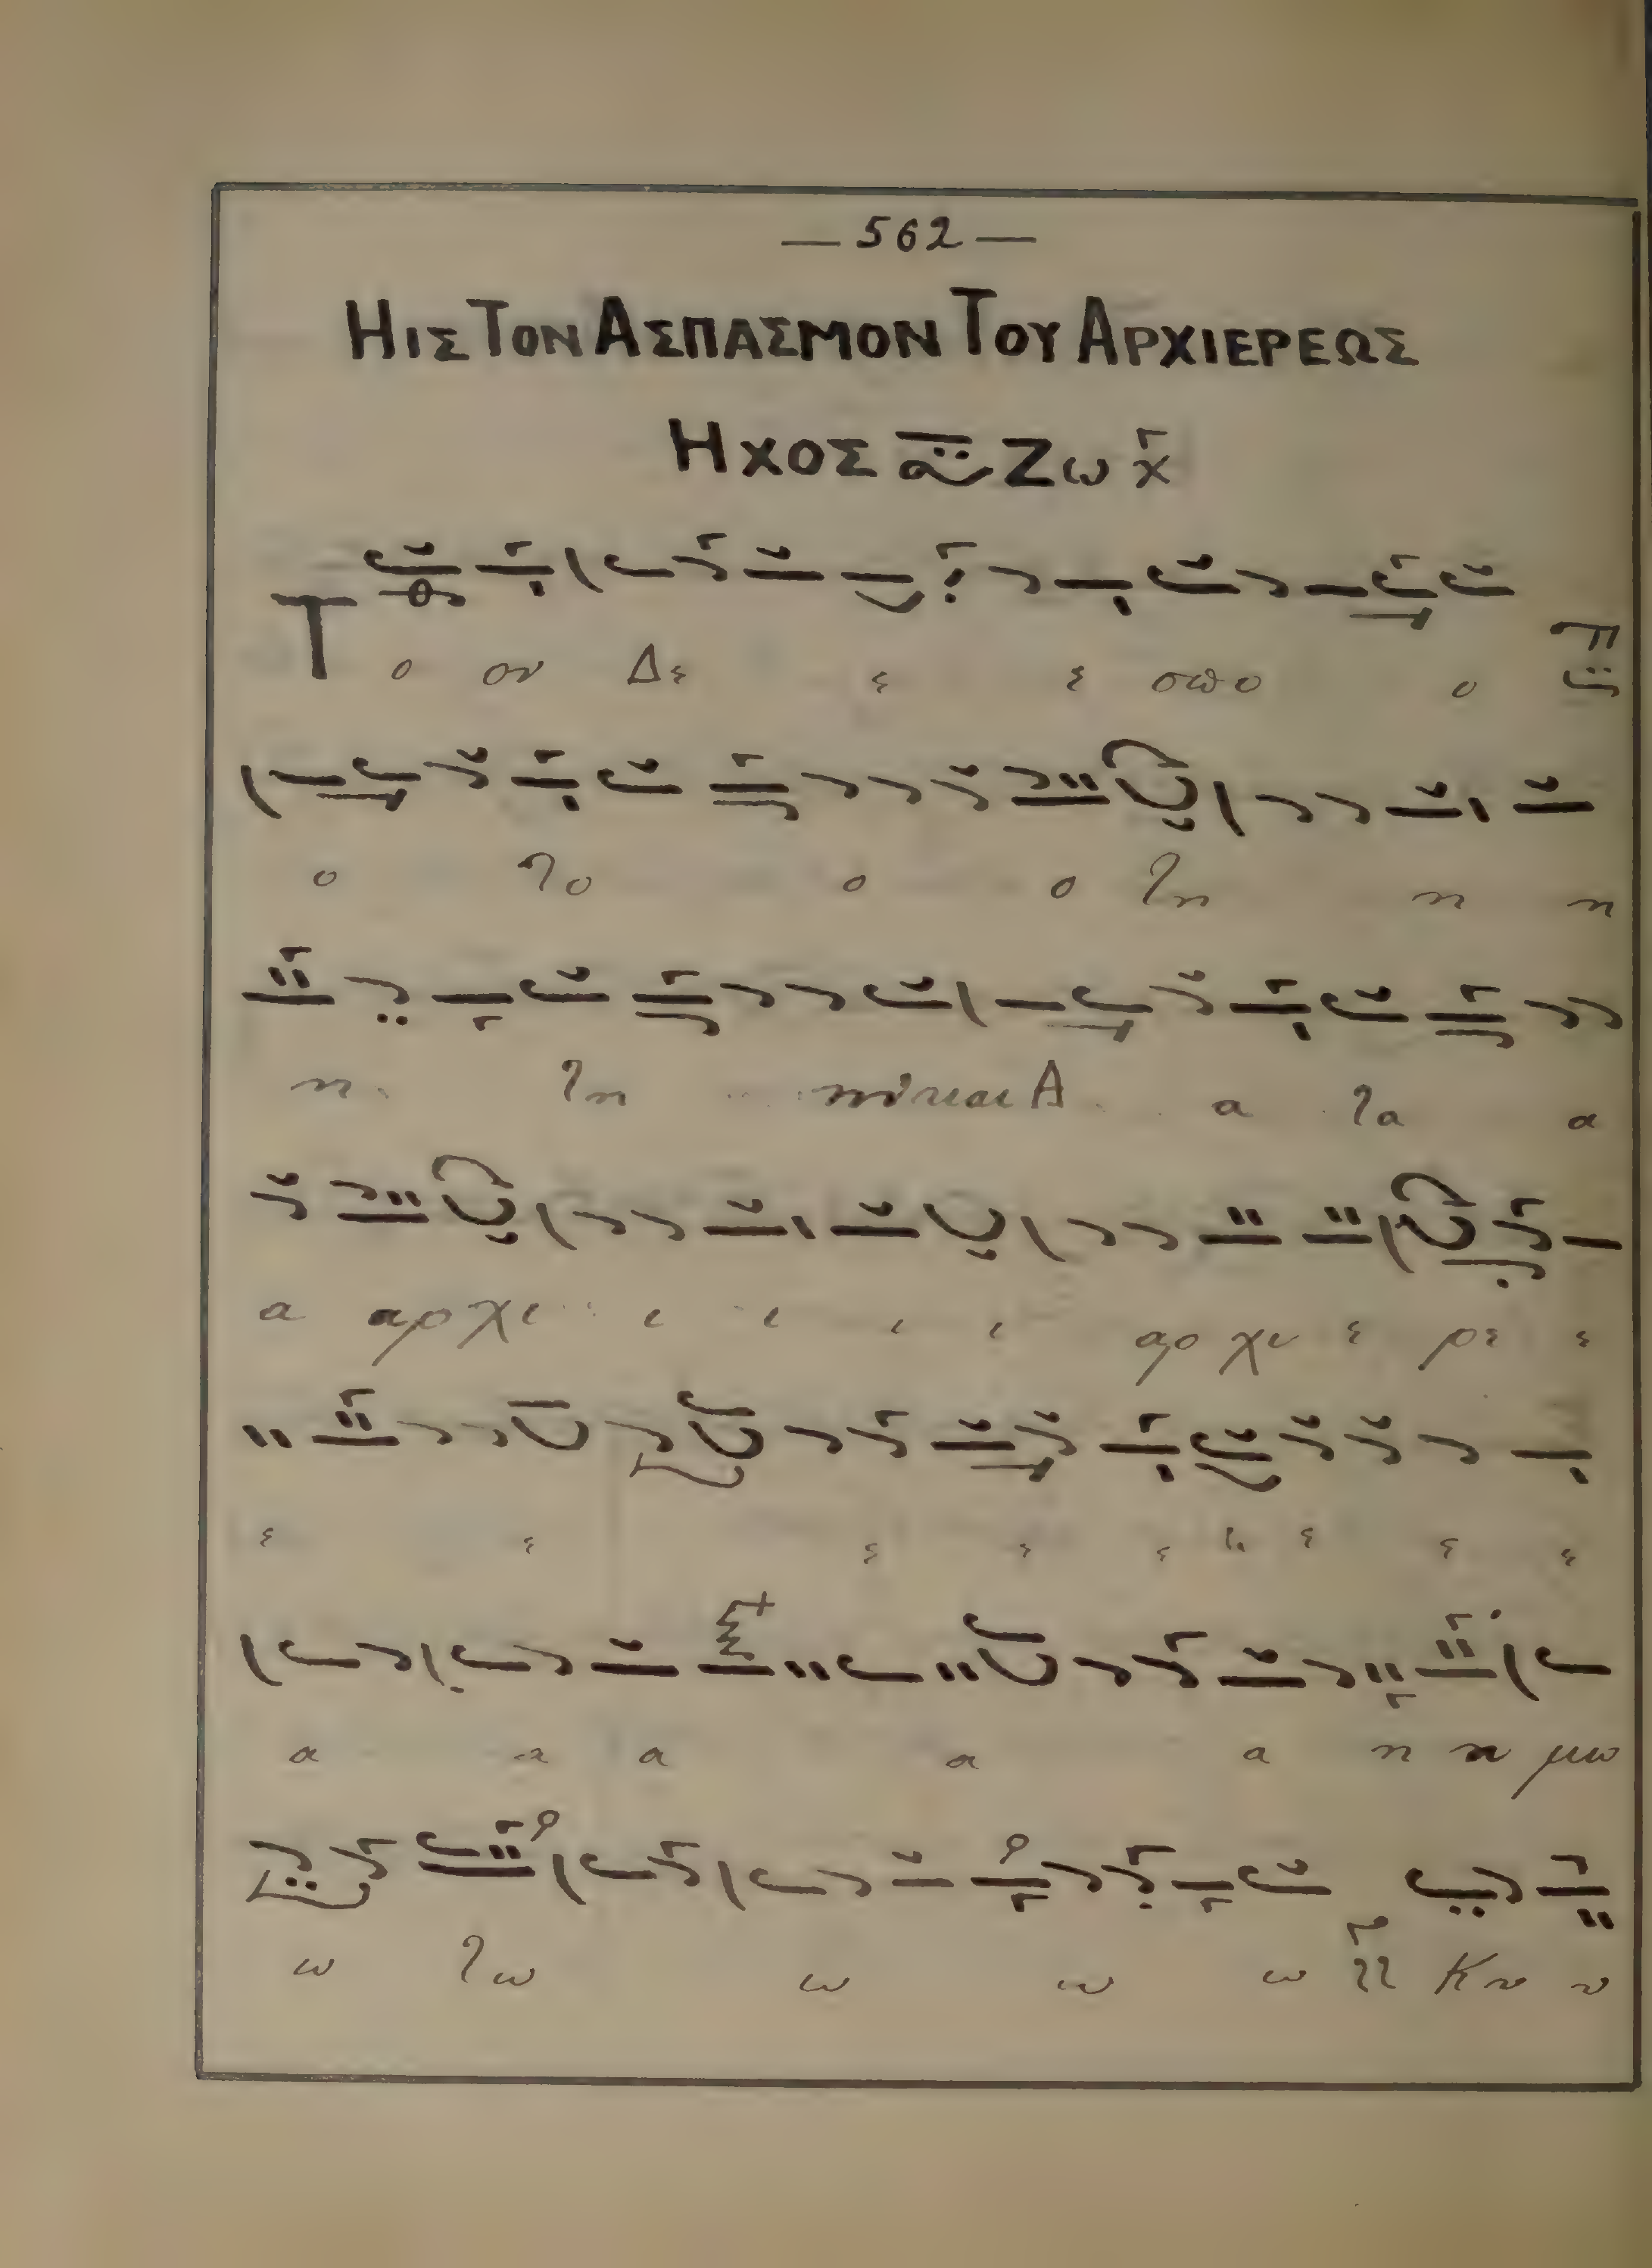 — 562 —
ΗΙΣ ΤΟΝ ΑΣΠΑΣΜΟΝ ΤΟΥ ΑΡΧΙΕΡΕΩΣ
ΗΧΟΣ Ζω
Τ ο ον Δε ε ε σπο ο
ο το ο ο τη η η
η τη ην και Α α τα α
α αρ χι ι ι ι ι αρ χι ε ρε ε
ε ε ε ε ε ε ε ε
α α α α α η η μω
ω τω ω ω ω Κυ υ